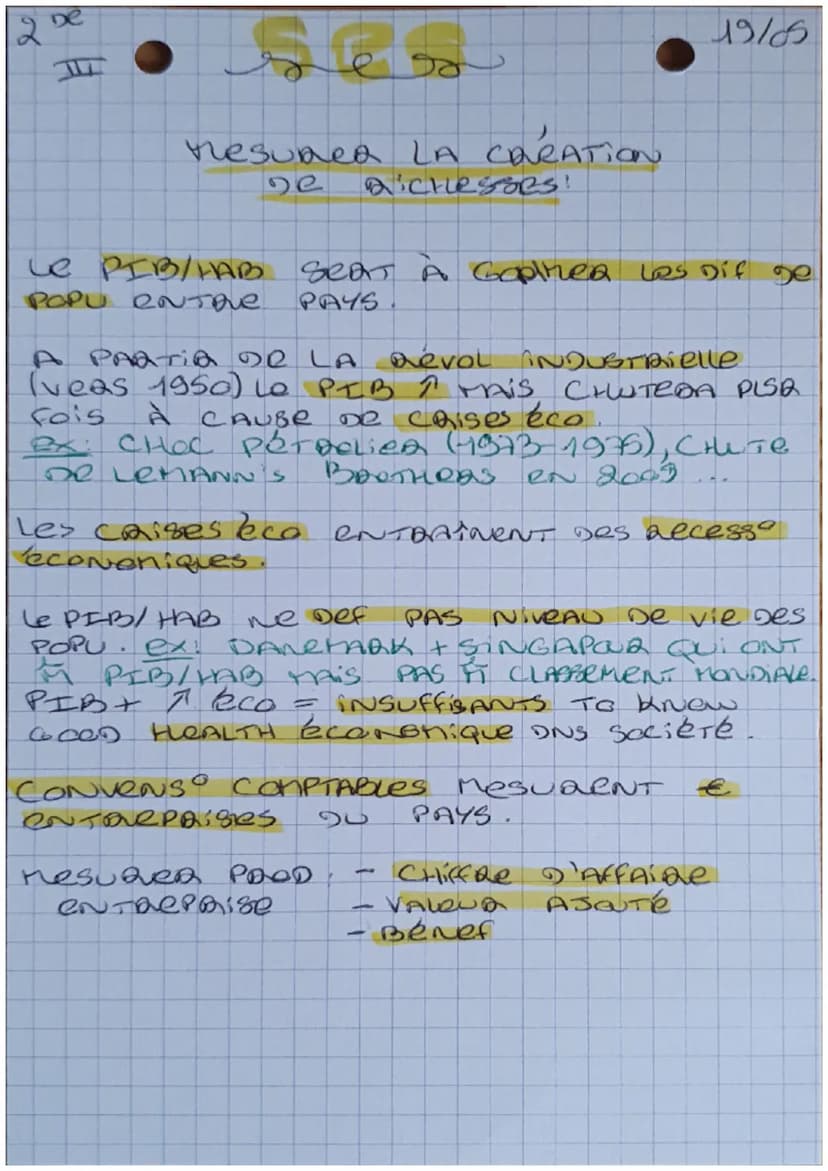 2de
III
SES
19/05
MESURER LA CRÉATION
DE RICHESSES:
Le PIB/HAB SERT À GOMMER LES DIF DE
POPU ENTRE PAYS.
A PARTIR DE LA RÉVOL INDUSTRIELLE
(VERS 1950) LE PIB ↑ MAIS CHUTERA PLSR
FOIS À CAUSE DE CRISES ÉCO.
EX: CHOC PÉTROLIER (1973-1975), CHUTE
DE LEMANN'S BROTHERS EN 2009 ...
LES CRISES ÉCO ENTRAÎNENT DES RECESS°
ÉCONOMIQUES.
LE PIB/HAB NE DEF PAS NIVEAU DE VIE DES
POPU. EX: DANEMARK + SINGAPOUR QUI ONT
M̂ PIB/HAB MAIS PAS M̂ CLASSEMENT MONDIALE.
PIB + ↑ ÉCO = INSUFFISANTS TO KNOW
GOOD HEALTH ÉCONOMIQUE DNS SOCIÉTÉ.
CONVENS° COMPTABLES MESURENT €
ENTREPRISES DU PAYS.
MESURER PROD. - CHIFFRE D'AFFAIRE
ENTREPRISE - VALEUR AJOUTÉ
- BÉNEF